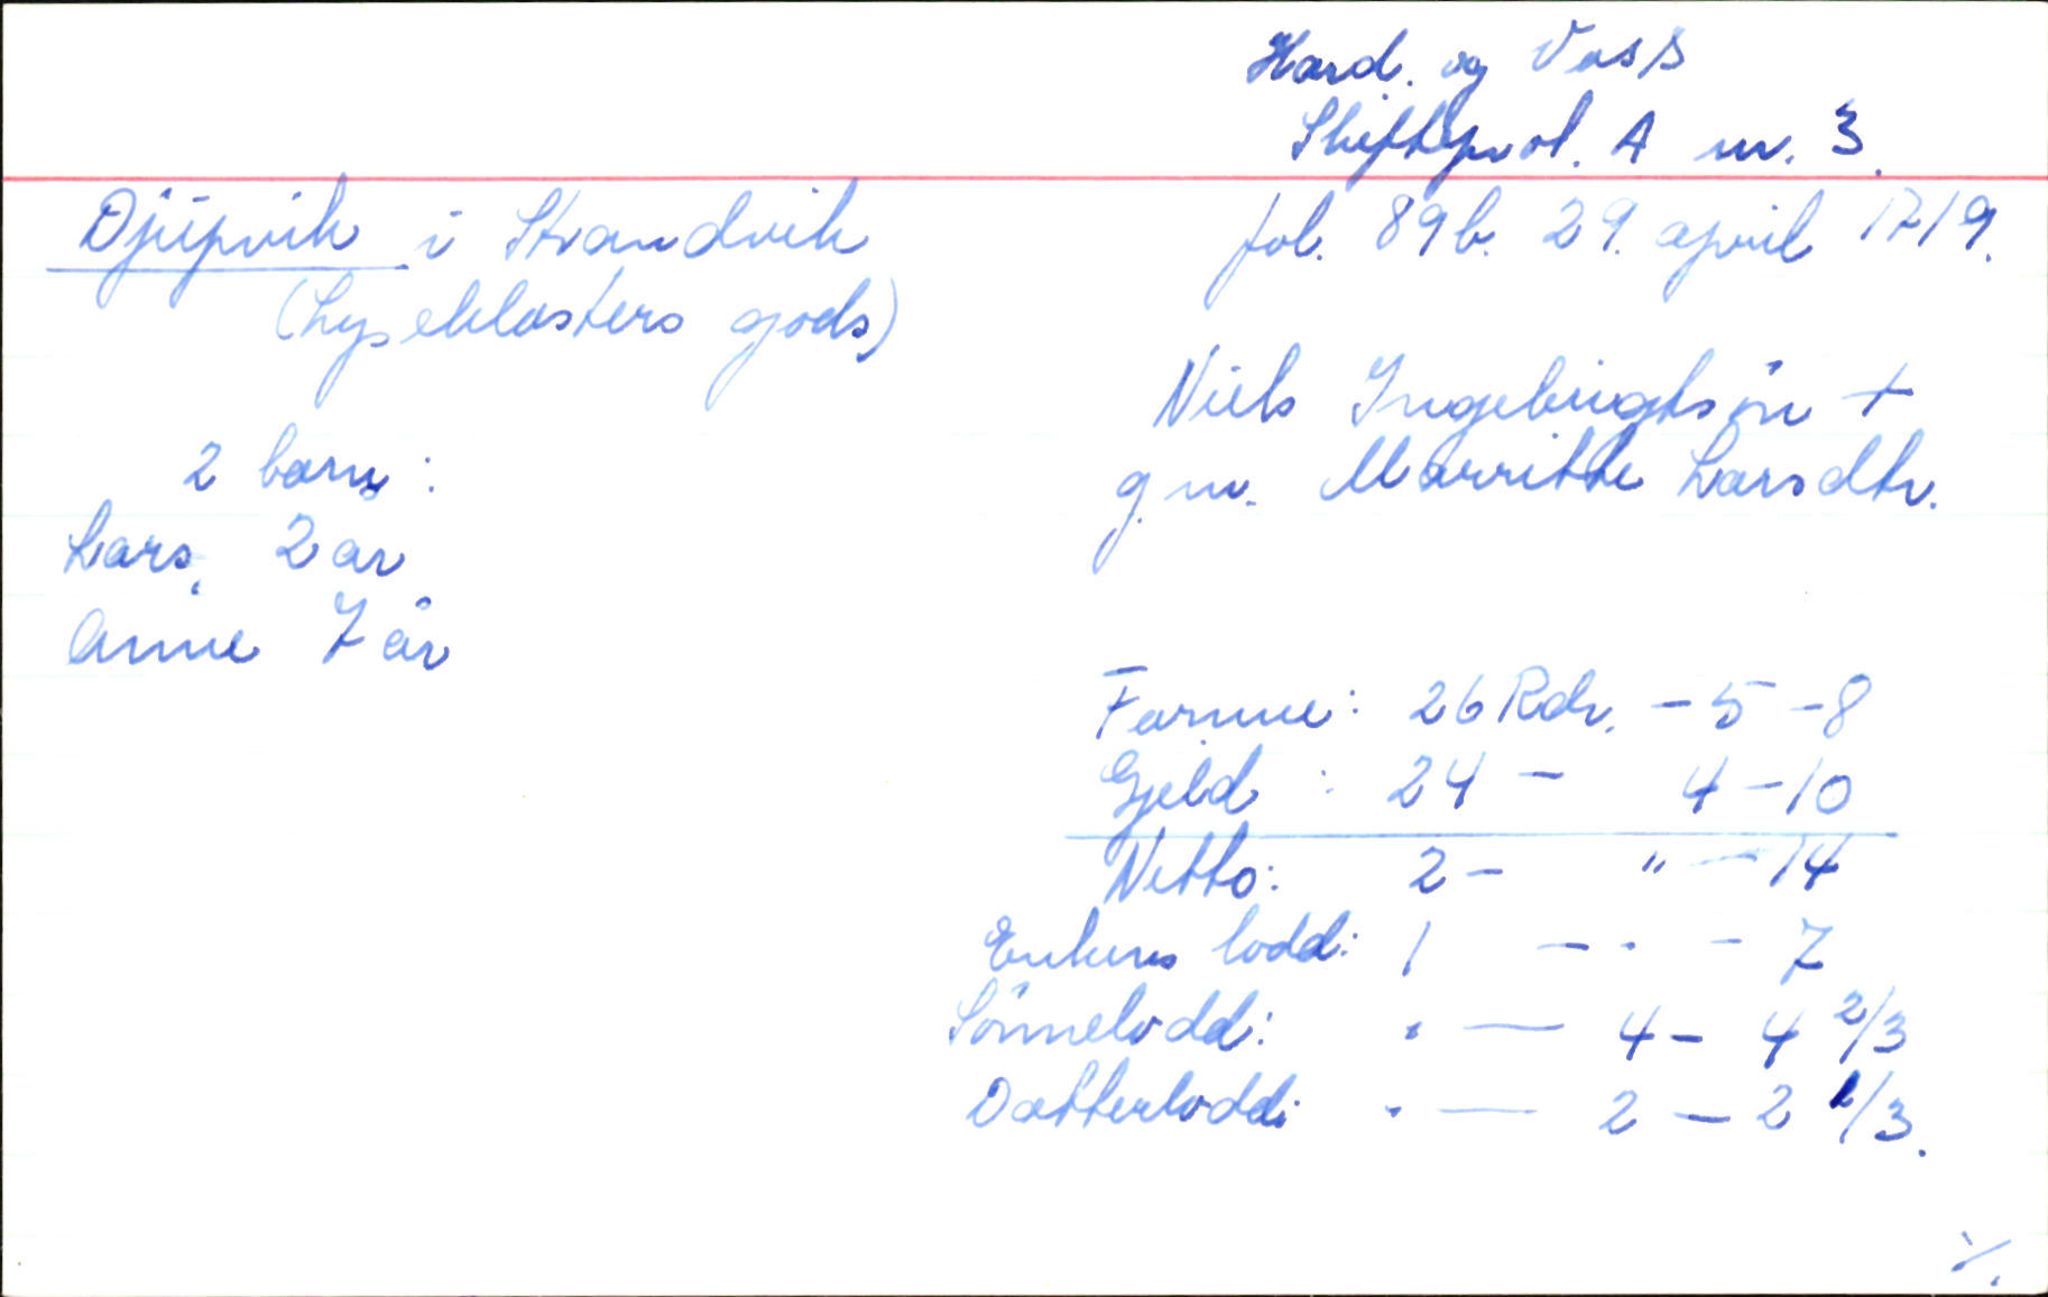 Hard. og Voss
Skifteprot. A nr. 3.
Djupvik i Strandvik
fol. 89b. 29. april 1719.
(Lyseklosters gods)
Niels Ingebrigtsøn +
g.m. Marritthe Larsdtr.
2 barn:
Lars, 2 år
Anne 7 år
Formue: 26 Rdr. - 5 - 8
Gjeld : 24 - 4 - 10
Netto: 2 - " - 14
Enkens lodd: 1 - . - 7
Sönnelodd: . - 4 - 4 2/3
Datterlodd: . - 2 - 2 1/3.